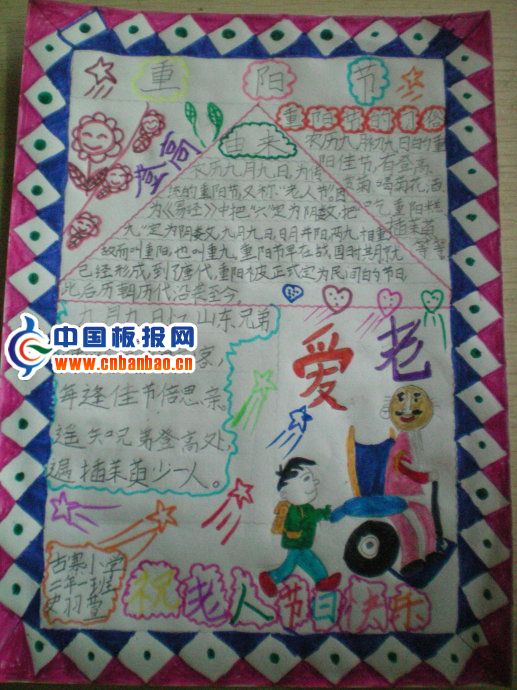 重阳节
登高
由来
农历九月九日,为传
统的重阳节又称"老人节"。因
为《易经》中把"六"定为阴数,把
九"定为阴数,九月九日,日月并阳,两九相重,
故而叫重阳,也叫重九。重阳节早在战国时期就
已经形成,到了唐代,重阳被正式定为民间的节日
此后历朝历代沿袭至今。
重阳节的习俗
农历九月初九日的重
阳佳节,有登高,
赏菊,喝菊花酒
吃重阳糕
插茱萸
等等
九月九日忆山东兄弟
客,
每逢佳节倍思亲
遥知兄弟登高处,
遍插茱萸少一人。
中国板报网
www.cnbanbao.cn
爱老
小学
二年一班
祝老人节日快乐